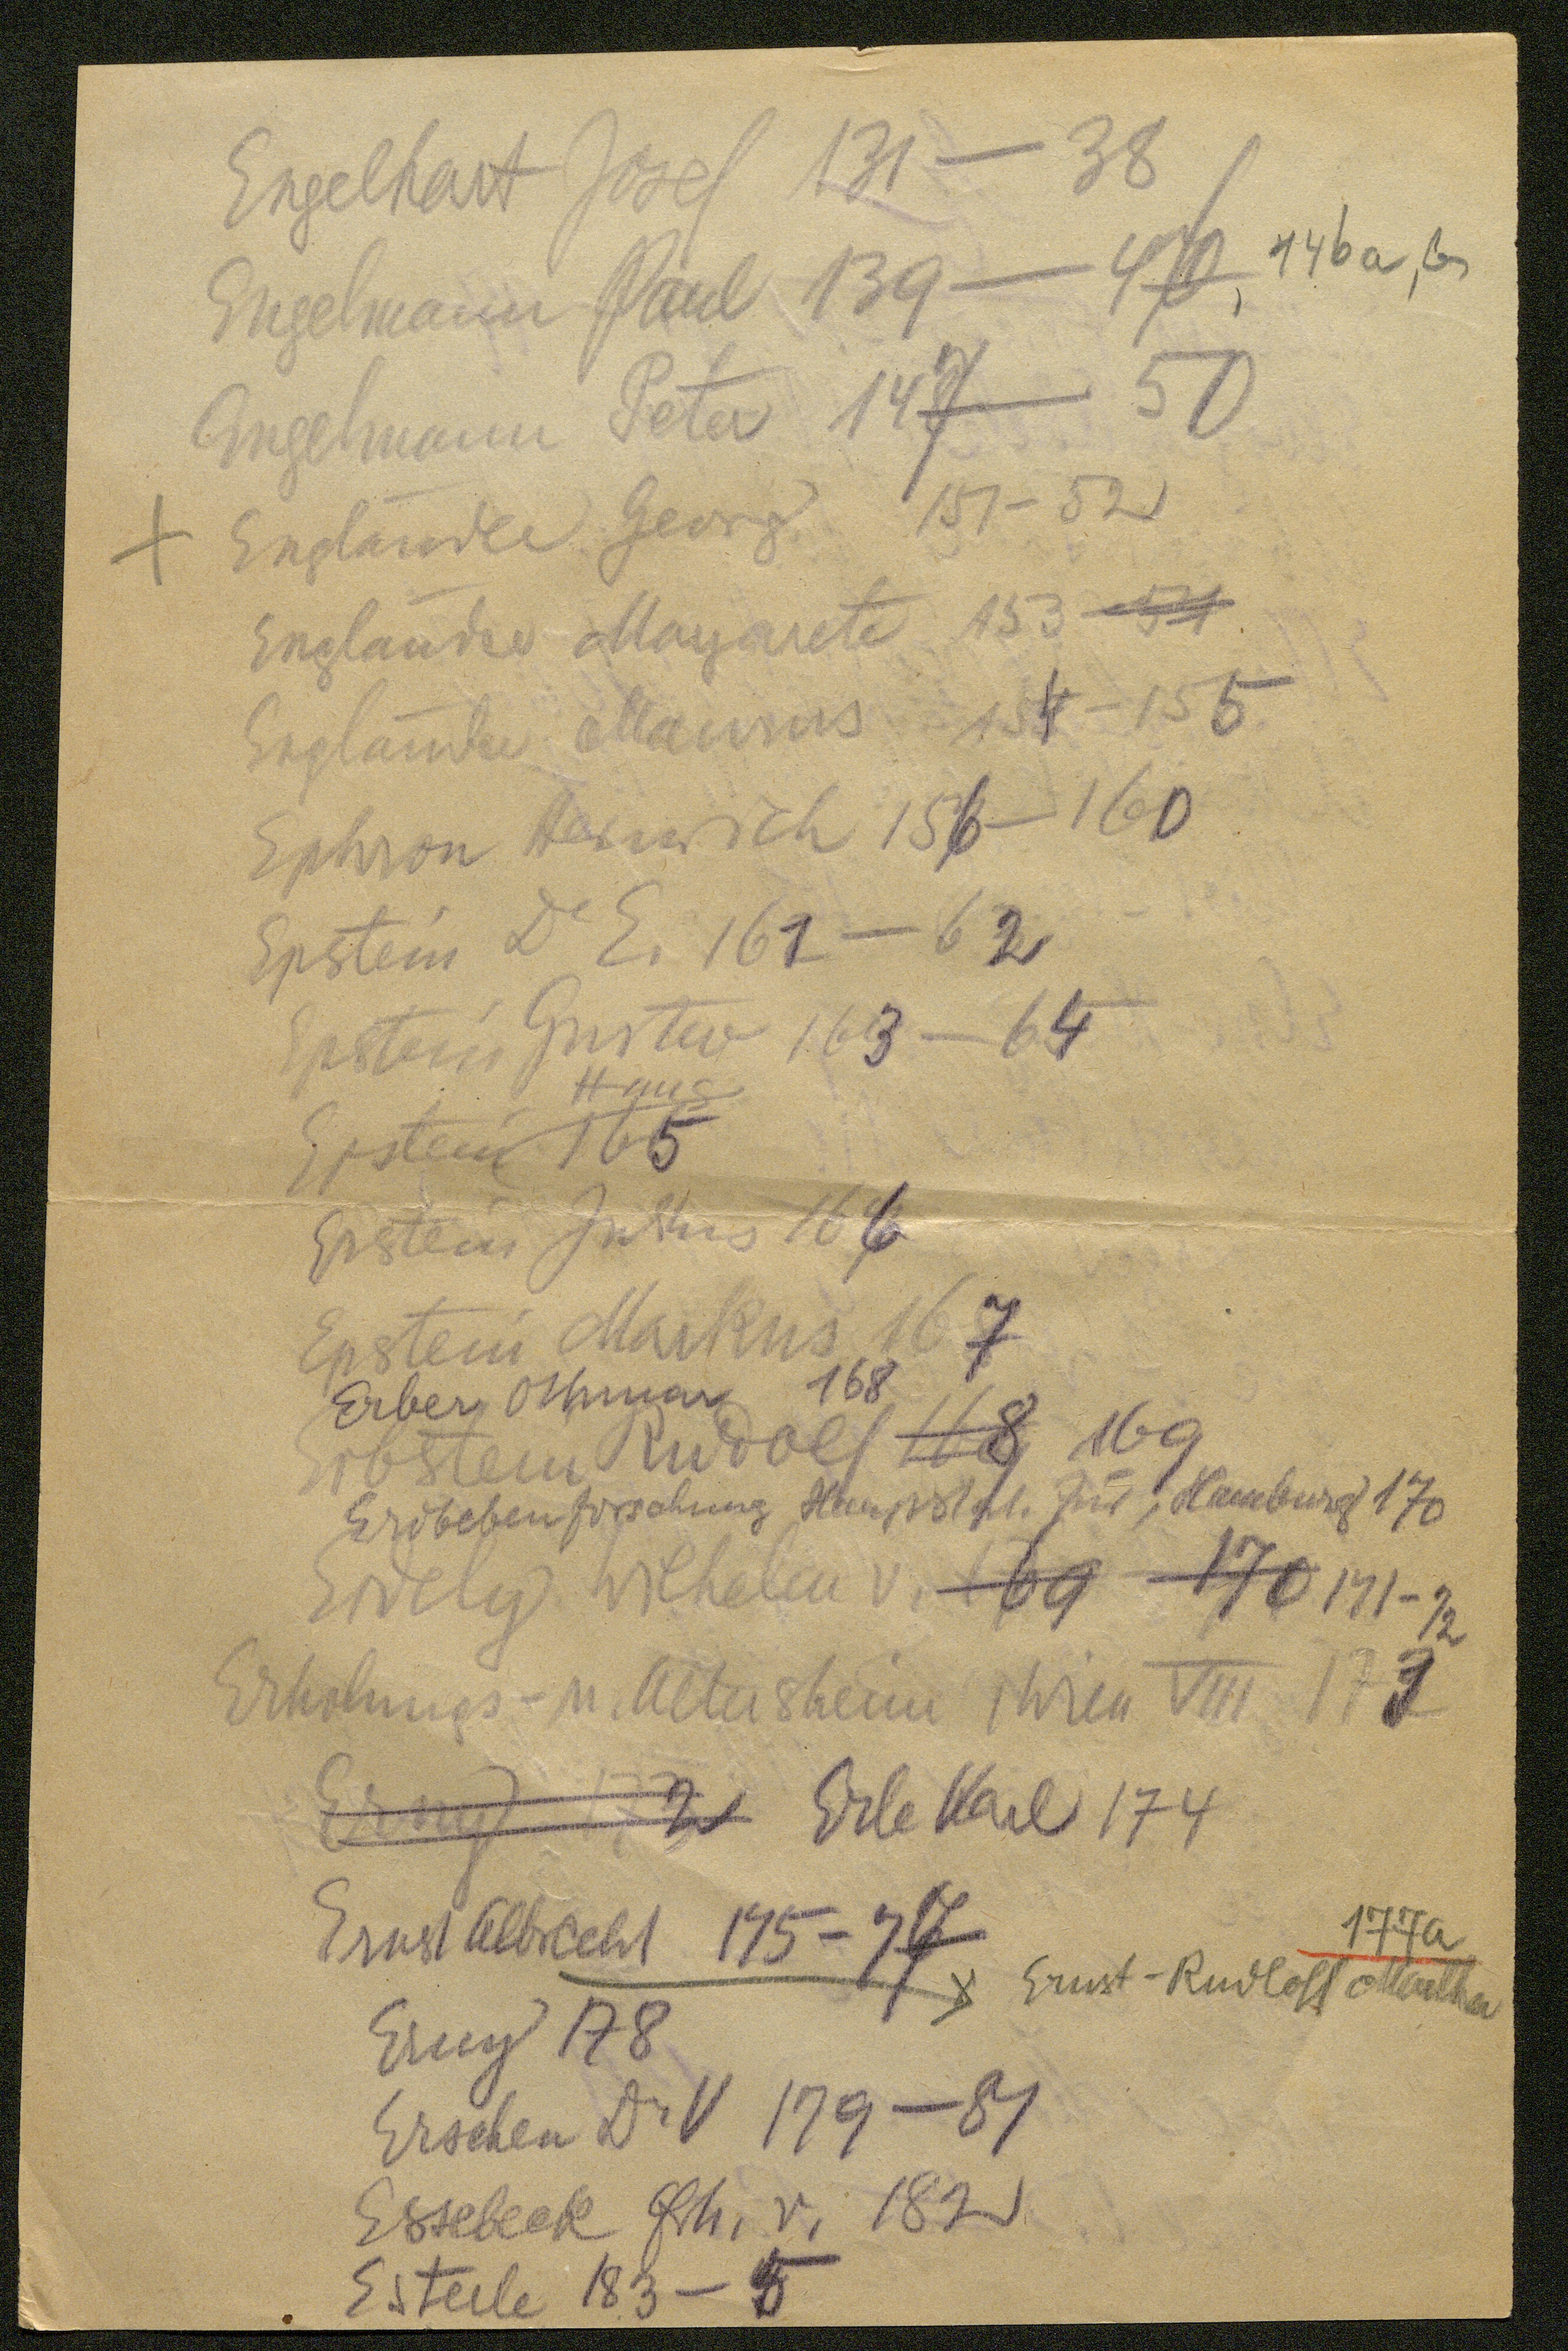 Engelhart Josef 131 — 38
Engelmann Paul 139 — 46, 146a, b
Engelmann Peter 147 — 50
+ Engländer Georg 151 - 52
Engländer Margarete 153 - 54
Engländer Maurus 154 - 155
Ephron Heinrich 156 - 160
Epstein Dr E. 161 — 62
Epstein Gustav 163 — 64
Hans
Epstein 165
Epstein Julius 166
Epstein Markus 167
Erber Othmar 168
Erbstein Rudolf 168 169
Erdbebenforschung Hauptst. für, Hamburg 170
Erdely Wilhelm v. 169 - 170 171 - 72
Erholungs- u. Altersheim Wien VIII 173
Erny 172 Erle Karl 174
Ernst Albrecht 175 - 77
177a
Ernst-Rudloff Martha
Erny 178
Erschen Dr V 179 — 81
Essebeck Frh. v. 182
Esterle 183 — 5